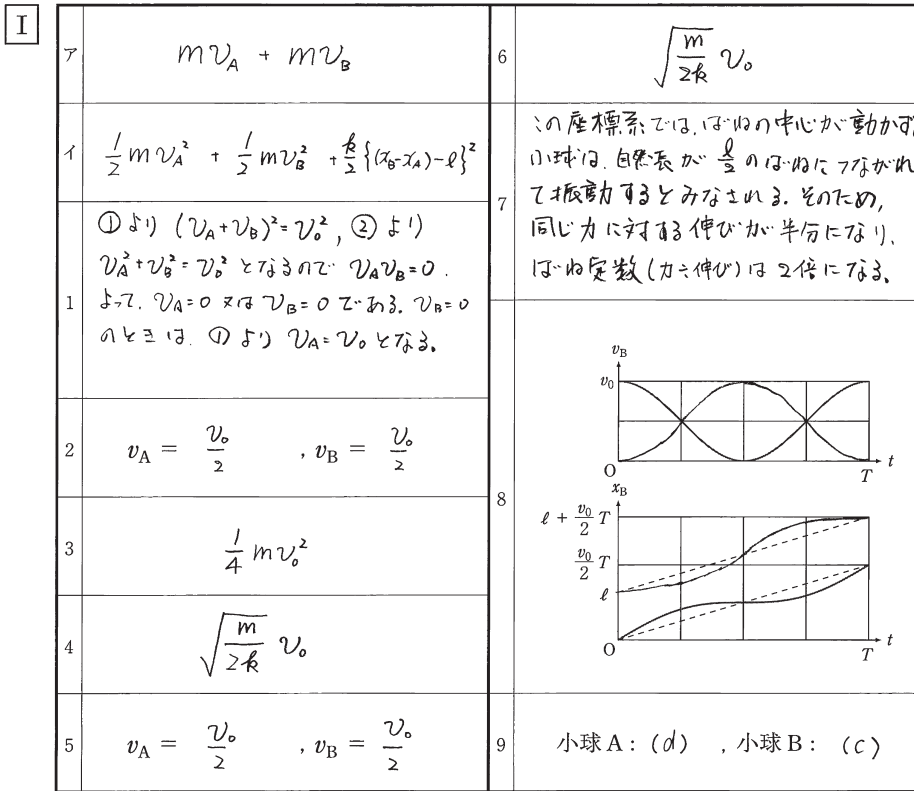 I
ア
mv_A + mv_B
イ
1/2 mv_A^2 + 1/2 mv_B^2 + k/2 {(x_B-x_A)-ℓ}^2
1
①より (v_A+v_B)^2=v_0^2, ②より
v_A^2+v_B^2=v_0^2 となるので v_Av_B=0.
よって, v_A=0 又は v_B=0 である. v_B=0
のときは, ①より v_A=v_0 となる.
2
v_A = v_0/2 , v_B = v_0/2
3
1/4 mv_0^2
4
√(m/2k) v_0
5
v_A = v_0/2 , v_B = v_0/2
6
√(m/2k) v_0
7
この座標系では, ばねの中心が動かず
小球は, 自然長が ℓ/2 のばねにつながれ
て振動するとみなされる. そのため,
同じ力に対する伸びが半分になり,
ばね定数(力÷伸び)は2倍になる.
8
v_B
v_0
O
T
t
x_B
ℓ + v_0/2 T
v_0/2 T
ℓ
O
T
t
9
小球A: (d) , 小球B: (c)